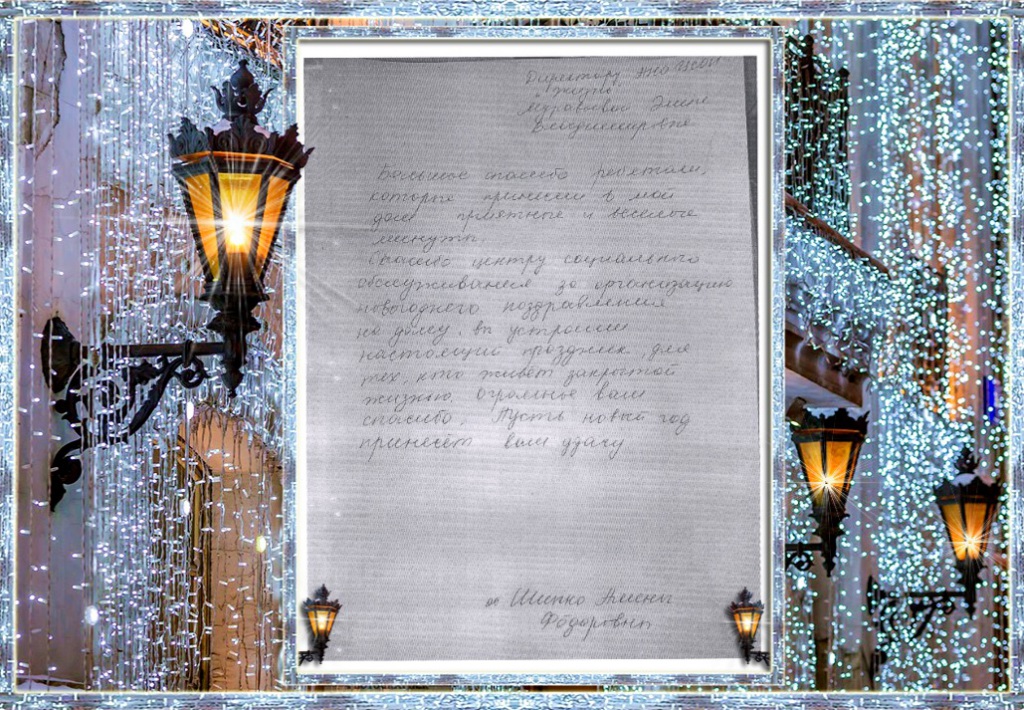 Директору АНО ЦСОН
"Жизнь"
Муравьевой Элине
Владимировне
Большое спасибо ребятам,
которые принесли в мой
дом приятные и веселые
минуты.
Спасибо центру социального
обслуживания за организацию
новогоднего поздравления
на дому. вы устроили
настоящий праздник, для
тех, кто живёт закрытой
жизнью. Огромное вам
спасибо. Пусть новый год
принесёт вам удачу
от Шипко
Фёдоровны